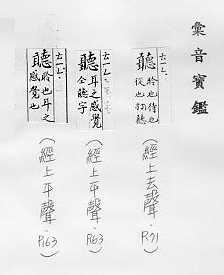 彙音寶鑑
聽 聆也待也
從也
(經上去聲. P.71)
聽 耳之感覺
仝聽字
(經上平聲. P.63)
聽 聆也耳之
感覺也
(經上平聲. P.63)